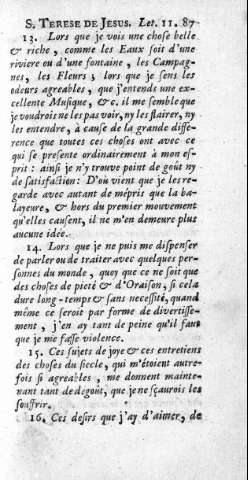 S. TERESE DE JESUS. Let. 11. 87
13. Lors que je vois une chose belle
& riche, comme les Eaux soit d'une
riviere ou d'une fontaine, les Campag-
nes, les Fleurs; lors que je sens les
odeurs agreables, que j'entends une ex-
cellente Musique, &c. il me semble que
je voudrois ne les pas voir, ny les flairer, ny
les entendre, à cause de la grande diffe-
rence que toutes ces choses ont avec ce
qui se presente ordinairement à mon es-
prit: ainsi je n'y trouve point de goût ny
de satisfaction: D'où vient que je les re-
garde avec autant de mépris que la ba-
layeure, & hors du premier mouvement
qu'elles causent, il ne m'en demeure plus
aucune idée.
14. Lors que je ne puis me dispenser
de parler ou de traiter avec quelques per-
sonnes du monde, quoy que ce ne soit que
des choses de pieté & d'Oraison, si cela
dure long-temps & sans necessité, quand
même ce seroit par forme de divertisse-
ment, j'en ay tant de peine qu'il faut
que je me fasse violence.
15. Ces sujets de joye & ces entretiens
des choses du siecle, qui m'étoient autre-
fois si agreables, me donnent mainte-
nant tant de dégoût, que je ne sçaurois les
souffrir.
16. Ces desirs que j'ay d'aimer, de